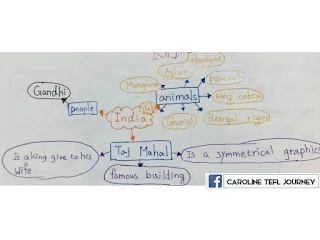 elephant
Asian
peacock
Gandhi
Mongoose
animals
people
king cobra
India
Gharial
Bengal tiger
Taj Mahal
Is a king give to his
wife
Is a symmetrical graphics
famous building
CAROLINE TEFL JOURNEY